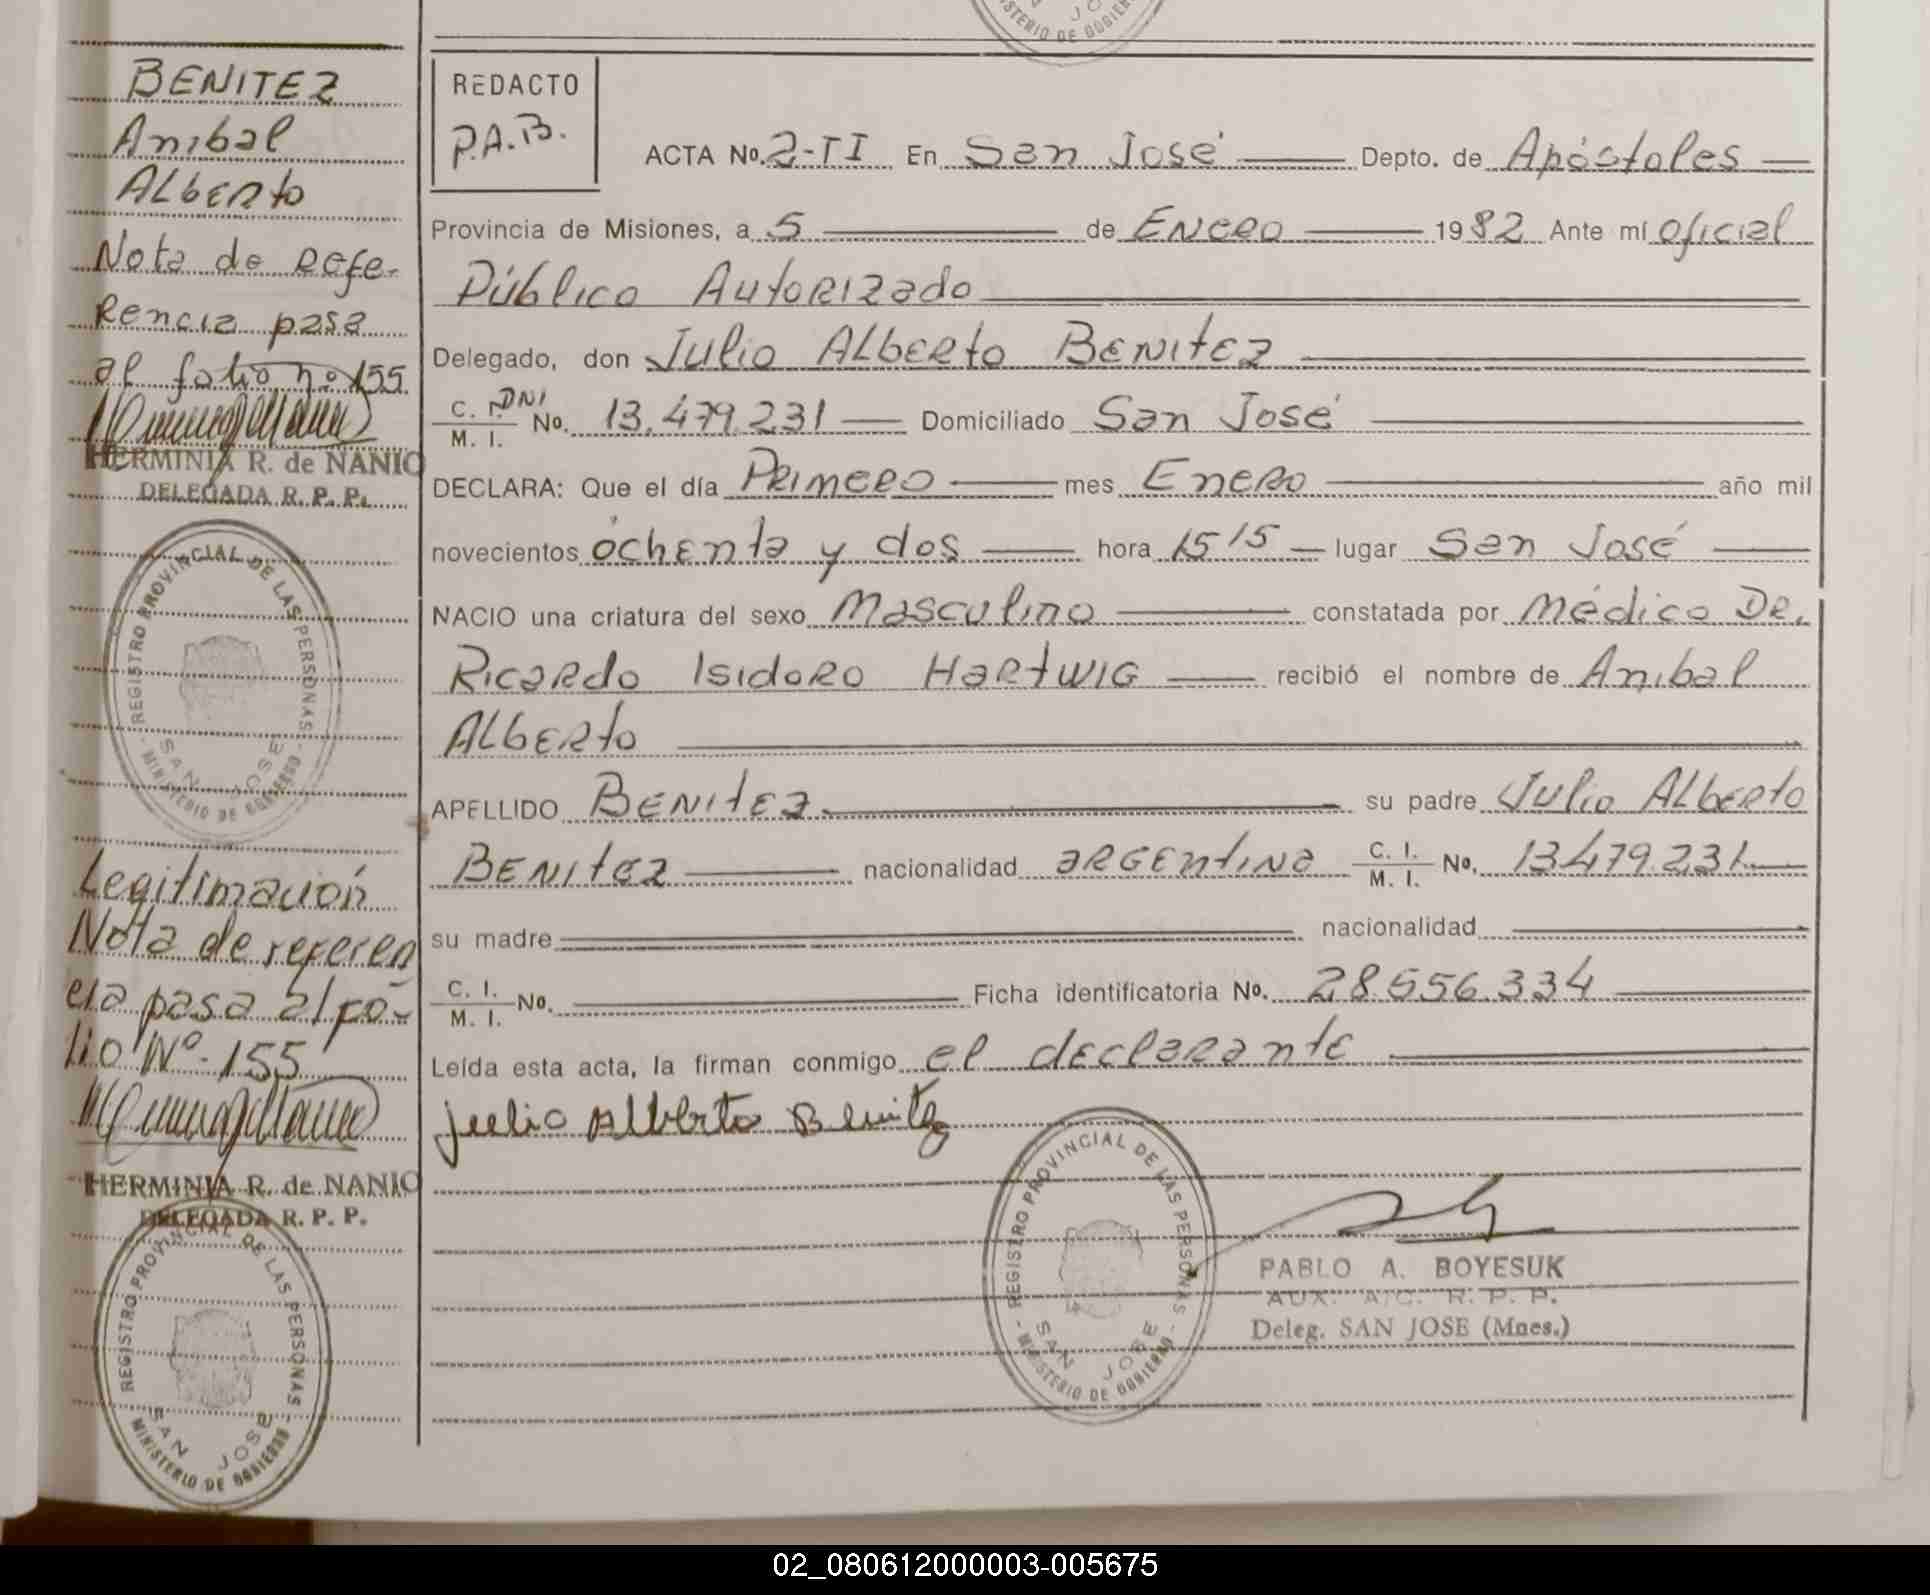 MINISTERIO DE GOBIERNO
BENITEZ
Anibal
Alberto
Nota de refe-
rencia pasa
al folio nº 155
HERMINIA R. de NANIO
DELEGADA R. P. P.
REGISTRO PROVINCIAL DE LAS PERSONAS
SAN JOSE
MINISTERIO DE GOBIERNO
Legitimación
Nota de referen
cia pasa al fó-
lio Nº 155
HERMINIA R. de NANIO
DELEGADA R. P. P.
REGISTRO PROVINCIAL DE LAS PERSONAS
SAN JOSE
MINISTERIO DE GOBIERNO
REDACTO
P.A.B.
ACTA No. 2-TI En San José Depto. de Apóstoles
Provincia de Misiones, a 5 de Enero 1982 Ante mí oficial
Público Autorizado
Delegado, don Julio Alberto Benitez
C. I. DNI
M. I. No. 13.479.231 Domiciliado San José
DECLARA: Que el día Primero mes Enero año mil
novecientos ochenta y dos hora 15 15 lugar San José
NACIO una criatura del sexo Masculino constatada por Médico Dr.
Ricardo Isidoro Hartwig recibió el nombre de Anibal
Alberto
APELLIDO Benitez su padre Julio Alberto
Benitez nacionalidad argentina C. I. M. I. No. 13479.231
su madre nacionalidad
C. I. M. I. No. Ficha identificatoria No. 28.556.334
Leída esta acta, la firman conmigo el declarante
Julio Alberto Benitez
REGISTRO PROVINCIAL DE LAS PERSONAS
SAN JOSE
MINISTERIO DE GOBIERNO
PABLO A. BOYESUK
AUX. A/C. R. P. P.
Deleg. SAN JOSE (Mnes.)
02_080612000003-005675